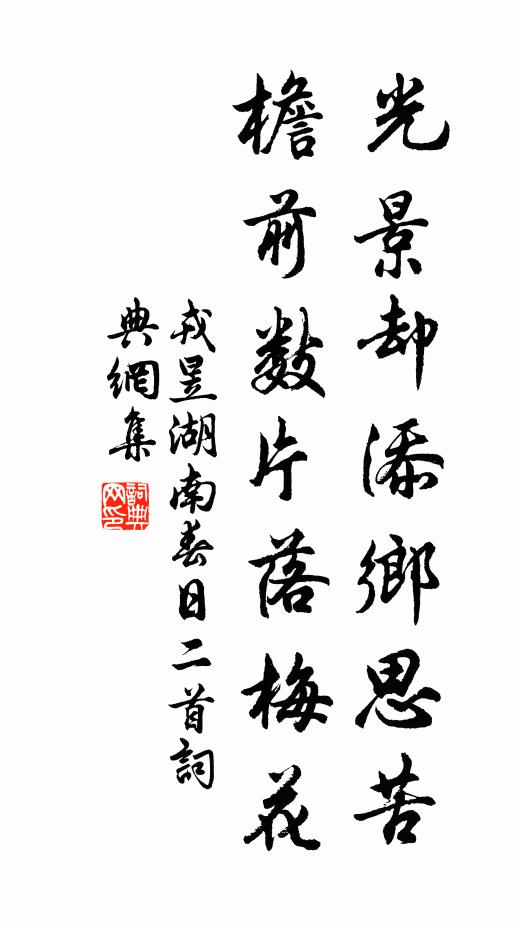 光景却添鄉思苦
檐前數片落梅花
戎昱湖南春日二首詞
典網集
詞典
网印